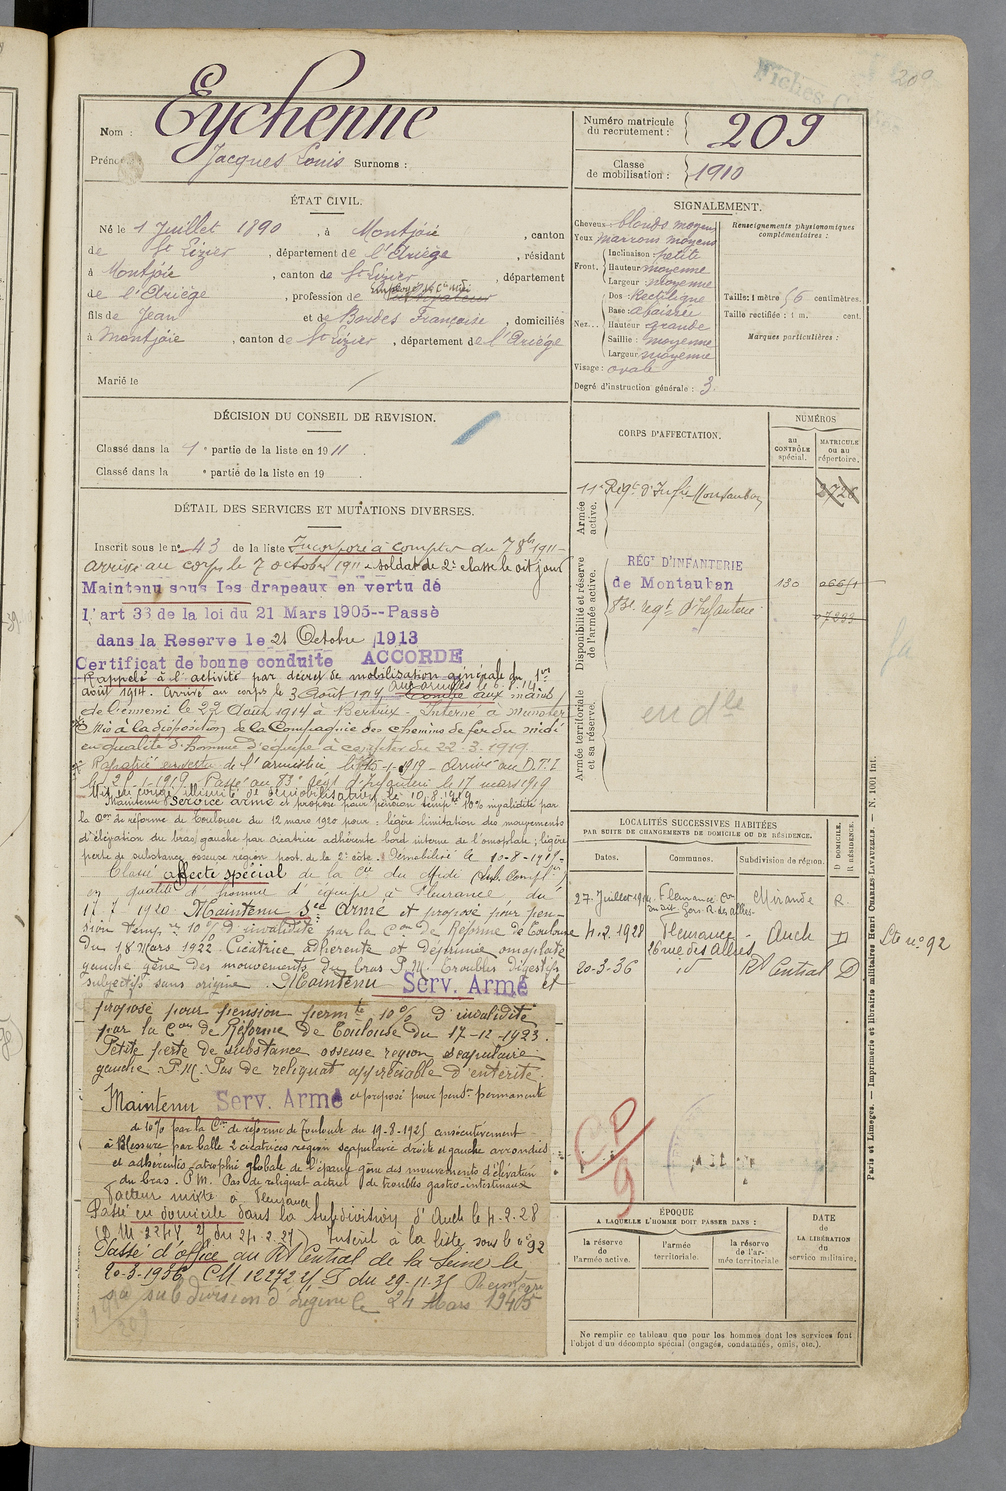 209
Fiches-C
Nom : Eychenne
Prénoms : Jacques Louis Surnoms :
Numéro matricule du recrutement : 209
Classe de mobilisation : 1910
ÉTAT CIVIL.
Né le 1 Juillet 1890, à Montjoie, canton
de St Lizier, département de l'Ariège, résidant
à Montjoie, canton de St Lizier, département
de l'Ariège, profession de employé de Cie midi cultivateur
fils de Jean et de Bordes Françoise, domiciliés
à Montjoie, canton de St Lizier, département de l'Ariège
Marié le
SIGNALEMENT.
Cheveux blonds moyens
Yeux marrons moyens
Front. Inclinaison : petite
Hauteur moyenne
Largeur moyenne
Nez... Dos : Rectiligne
Base : abaissée
Hauteur grande
Saillie : moyenne
Largeur moyenne
Visage : ovale
Degré d'instruction générale : 3
Renseignements physionomiques complémentaires :
Taille : 1 mètre 56 centimètres.
Taille rectifiée : 1 m. cent.
Marques particulières :
DÉCISION DU CONSEIL DE REVISION.
Classé dans la 1e partie de la liste en 1911.
Classé dans la e partie de la liste en 19 .
DÉTAIL DES SERVICES ET MUTATIONS DIVERSES.
Inscrit sous le no 43 de la liste Incorporé à compter du 7 8bre 1911 -
arrivé au corps le 7 octobre 1911 - soldat de 2e classe le dit jour
Maintenu sous les drapeaux en vertu dé
l'art 33 de la loi du 21 Mars 1905--Passé
dans la Reserve le 21 Octobre 1913
Certificat de bonne conduite ACCORDE
Rappelé à l'activité par décret de mobilisation générale du 1er
août 1914. Arrivé au corps le 3 Août 1914, aux armées le 6.8.14. Tombé aux mains
de l'ennemi le 22 Août 1914 à Bertrix - Interné à Munster
Mis à la disposition de la Compagnie des chemins de fer du midi
en qualité d'homme d'équipe à compter du 22-3-1919.
Rapatrié en vertu de l'armistice le 15-1-1919 - Arrivé au D.T.I
le 21-1-1919. Passé au 83e régt d'Infanterie le 17 mars 1919
Mis en congé illimité de démobilisation le 10.8.1919
Maintenu Service armé et proposé pour pension tempre 10% invalidité par
la Con de réforme de Toulouse du 12 mars 1920 pour : légère limitation des mouvements
d'élévation du bras gauche par cicatrice adhérente bord interne de l'omoplate ; légère
perte de substance osseuse région post. de la 2e côte. Démobilisé le 10-8-1919 -
Classé affecté spécial de la Cie du Midi
en qualité d'homme d'équipe à Fleurance du
17.7 1920 Maintenu Sce Armé et proposé pour pen-
sion temp. re 10% d'invalidité par la Con de Réforme de Toulouse
du 18 Mars 1922. Cicatrice adhérente et déprimée omoplate
gauche gêne des mouvements du bras P.M. Troubles digestifs
subjectifs sans origine. Maintenu Serv. Armé et
proposé pour pension permte 10% d'invalidité
par la Con de Réforme de Toulouse du 17-12-1923.
Petite perte de substance osseuse région scapulaire
gauche. P.M. Pas de reliquat appréciable d'entérite.
Maintenu Serv. Armé et proposé pour pens. permanente
de 10% par la Con de réforme de Toulouse du 19-8-1925 consécutivement
à Blessure par balle 2 cicatrices région scapulaire droite et gauche arrondies
et adhérentes - atrophie globale de l'épaule gêne des mouvements d'élévation
du bras. P.M. Pas de reliquat actuel de troubles gastro-intestinaux
facteur mixte à Fleurance
Passé en domicile dans la subdivision d'Auch le 4.2.28
Inscrit à la liste sous le no 92
Passé d'office au Rt Central de la Seine le
20-3-1936. CM 12272 du 29-11-35 Réintégré
sa subdivision d'origine le 24 Mars 1940
CORPS D'AFFECTATION.
NUMÉROS
au CONTRÔLE spécial.
MATRICULE ou au répertoire.
Armée active.
11e Régt d'Infie Montauban
2726
Disponibilité et réserve de l'armée active.
RÉGt D'INFANTERIE
de Montauban
130
83e regt d'Infanterie
Armée territoriale et sa réserve.
en dle
LOCALITÉS SUCCESSIVES HABITÉES
PAR SUITE DE CHANGEMENTS DE DOMICILE OU DE RÉSIDENCE.
Dates. Communes. Subdivision de région. D DOMICILE. R RÉSIDENCE.
27 Juillet 1914 Fleurance Mirande R.
4.2.1928 Fleurance Auch D
26 rue des allées
20-3-36 id Rt Central D
Cte no 92
CP
9
ÉPOQUE
A LAQUELLE L'HOMME DOIT PASSER DANS :
la réserve de l'armée active.
l'armée territoriale.
la réserve de l'armée territoriale
DATE de la LIBÉRATION du service militaire.
Ne remplir ce tableau que pour les hommes dont les services font
l'objet d'un décompte spécial (engagés, condamnés, omis, etc.).
Paris et Limoges. — Imprimerie et librairie militaires Henri CHARLES-LAVAUZELLE. — N. 1001 int.